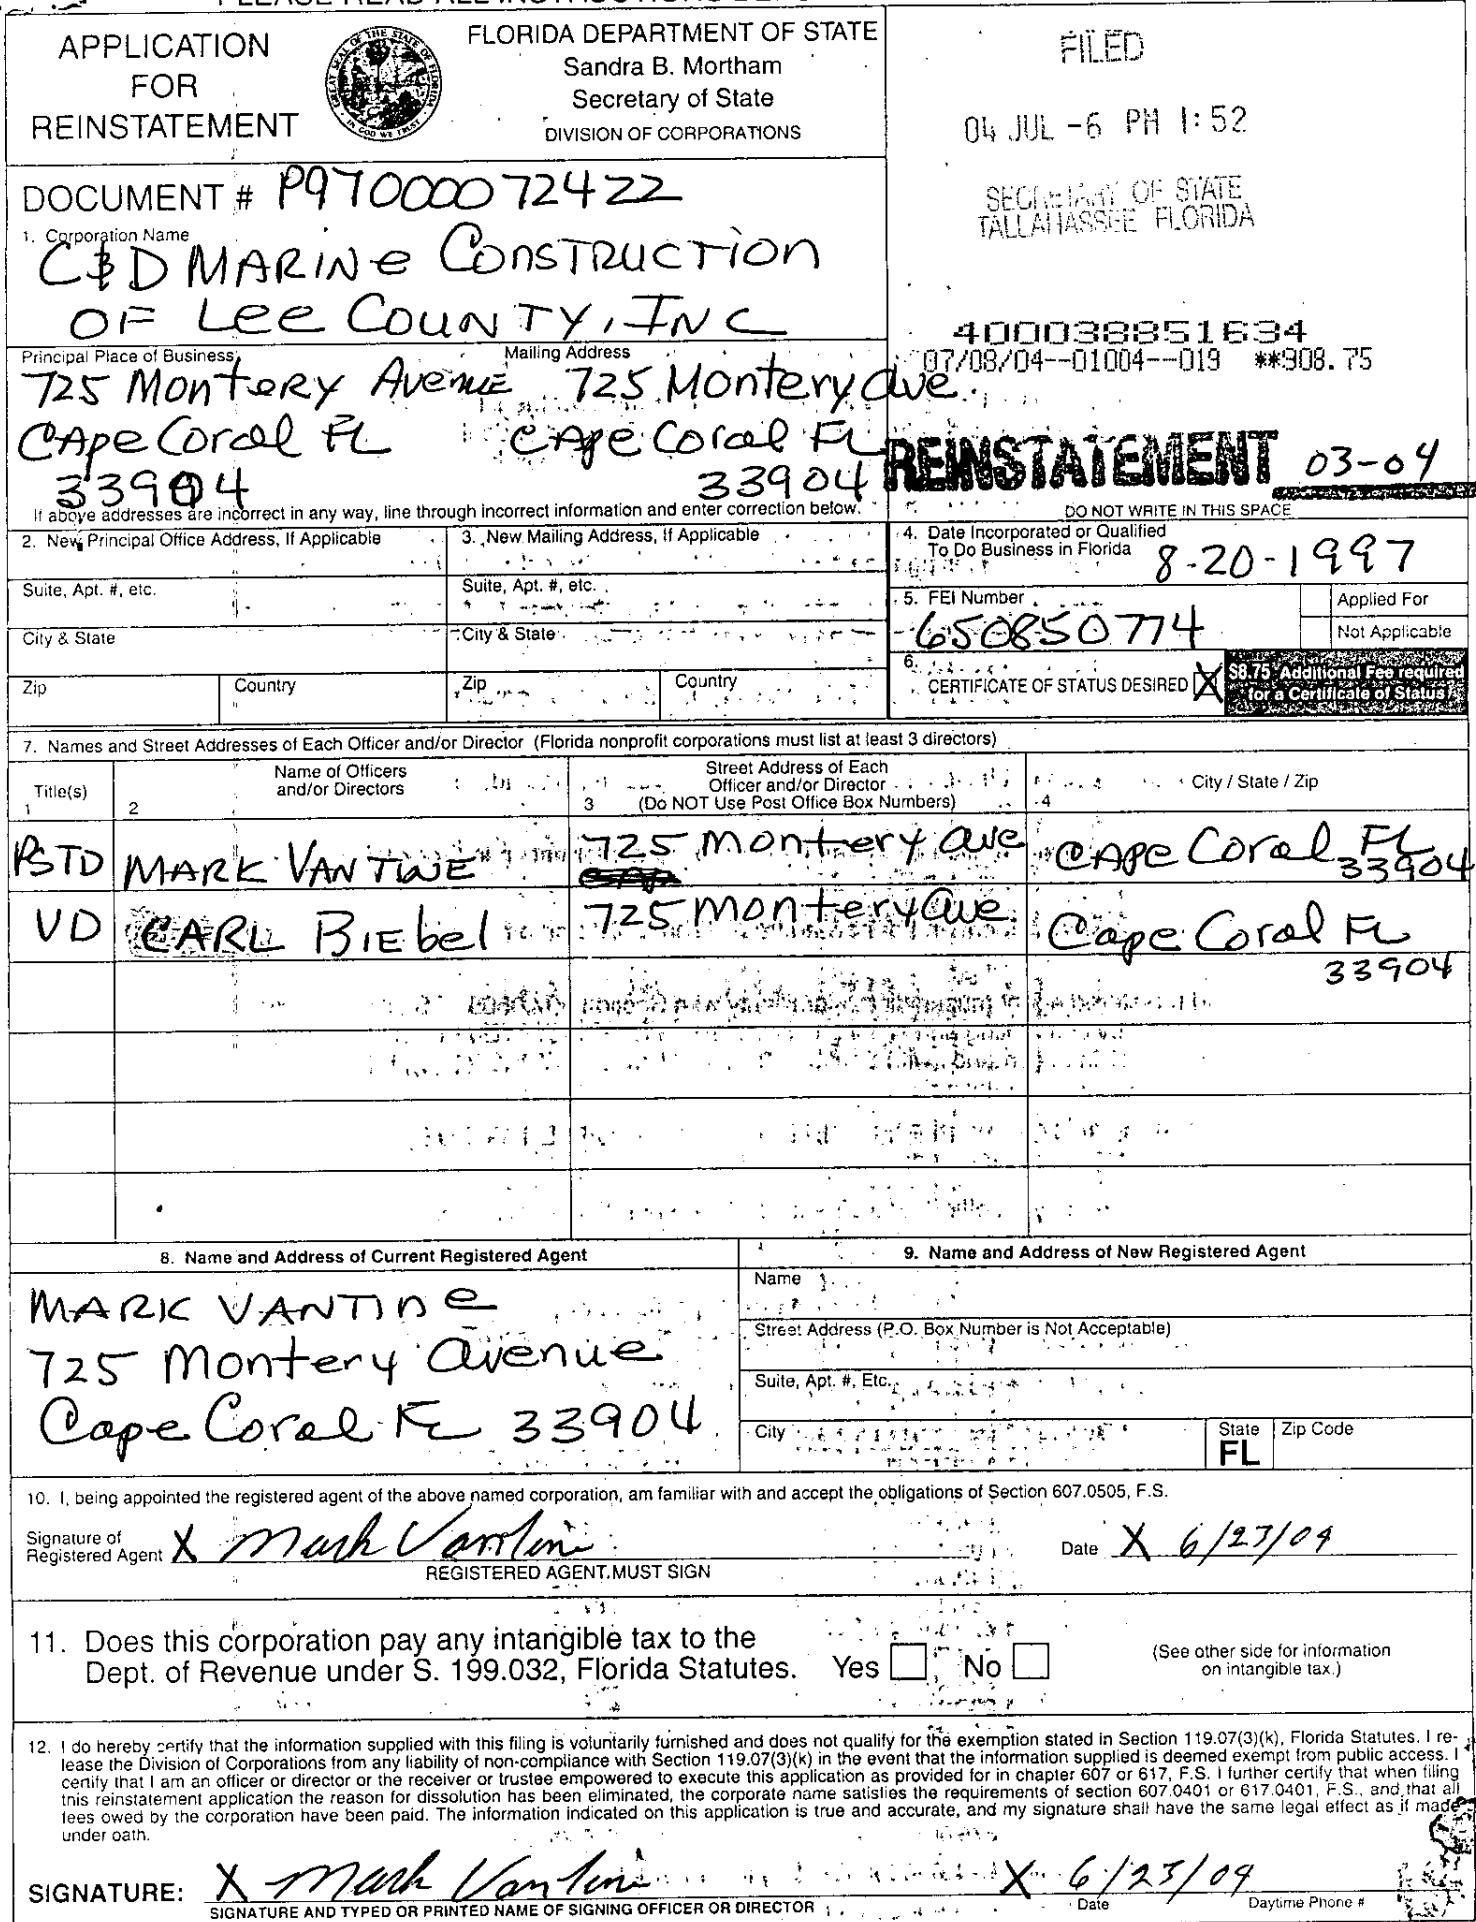 APPLICATION
FOR
REINSTATEMENT
FLORIDA DEPARTMENT OF STATE
Sandra B. Mortham
Secretary of State
DIVISION OF CORPORATIONS
FILED
04 JUL -6 PM 1:52
SECRETARY OF STATE
TALLAHASSEE FLORIDA
DOCUMENT # P97000072422
1. Corporation Name
C&D MARINe ConsTRucTion
OF Lee COUNTY, INC
400038851634
07/08/04--01004--019 **908.75
Principal Place of Business
Mailing Address
725 MonteRy Avenue
725 Montery ave.
CApe Coral FL
CApe Coral FL
33904
33904
REINSTATEMENT 03-04
If above addresses are incorrect in any way, line through incorrect information and enter correction below.
DO NOT WRITE IN THIS SPACE
2. New Principal Office Address, If Applicable
3. New Mailing Address, If Applicable
4. Date Incorporated or Qualified
To Do Business in Florida 8-20-1997
Suite, Apt. #, etc.
Suite, Apt. #, etc.
5. FEI Number
650850774
Applied For
Not Applicable
City & State
City & State
6.
CERTIFICATE OF STATUS DESIRED X
$8.75 Additional Fee required
for a Certificate of Status
Zip
Country
Zip
Country
7. Names and Street Addresses of Each Officer and/or Director (Florida nonprofit corporations must list at least 3 directors)
Title(s)
1
Name of Officers
and/or Directors
2
Street Address of Each
Officer and/or Director
3 (Do NOT Use Post Office Box Numbers)
City / State / Zip
4
PSTD MARK VANTINE 725 Montery ave CApe Coral FL
33904
VD CARL BIEbel 725 Montery ave. Cape Coral FL
33904
8. Name and Address of Current Registered Agent
9. Name and Address of New Registered Agent
MARK VANTINe
725 Montery avenue
Cape Coral FL 33904
Name
Street Address (P.O. Box Number is Not Acceptable)
Suite, Apt. #, Etc.
City
State
FL
Zip Code
10. I, being appointed the registered agent of the above named corporation, am familiar with and accept the obligations of Section 607.0505, F.S.
Signature of
Registered Agent X Mark Vantine
Date X 6/23/04
REGISTERED AGENT MUST SIGN
11. Does this corporation pay any intangible tax to the
Dept. of Revenue under S. 199.032, Florida Statutes. Yes No
(See other side for information
on intangible tax.)
12. I do hereby certify that the information supplied with this filing is voluntarily furnished and does not qualify for the exemption stated in Section 119.07(3)(k), Florida Statutes. I re-
lease the Division of Corporations from any liability of non-compliance with Section 119.07(3)(k) in the event that the information supplied is deemed exempt from public access. I
certify that I am an officer or director or the receiver or trustee empowered to execute this application as provided for in chapter 607 or 617, F.S. I further certify that when filing
this reinstatement application the reason for dissolution has been eliminated, the corporate name satisfies the requirements of section 607.0401 or 617.0401, F.S., and that all
fees owed by the corporation have been paid. The information indicated on this application is true and accurate, and my signature shall have the same legal effect as if made
under oath.
SIGNATURE: X Mark Vantine X 6/23/04
SIGNATURE AND TYPED OR PRINTED NAME OF SIGNING OFFICER OR DIRECTOR
Date
Daytime Phone #